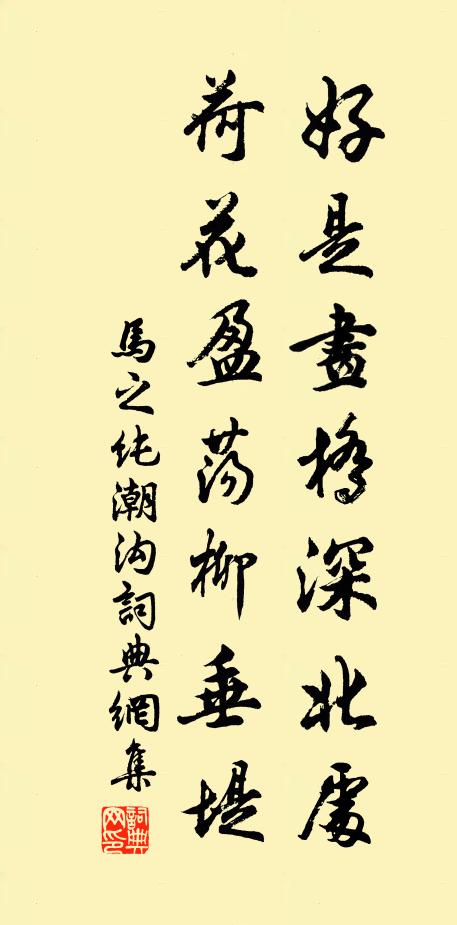 好是畫橋深北處
荷花盈蕩柳垂堤
馬之純潮溝詞典網集
詞典網印